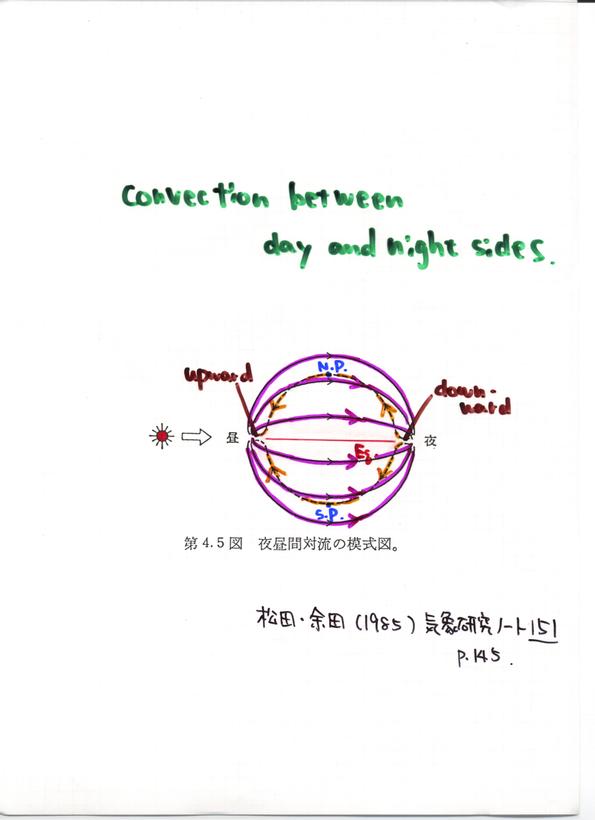 convection between
day and night sides.
upward
N.P.
down-
ward
昼
夜
Eq.
S.P.
第4.5図 夜昼間対流の模式図。
松田・余田 (1985) 気象研究ノート151
p.145.